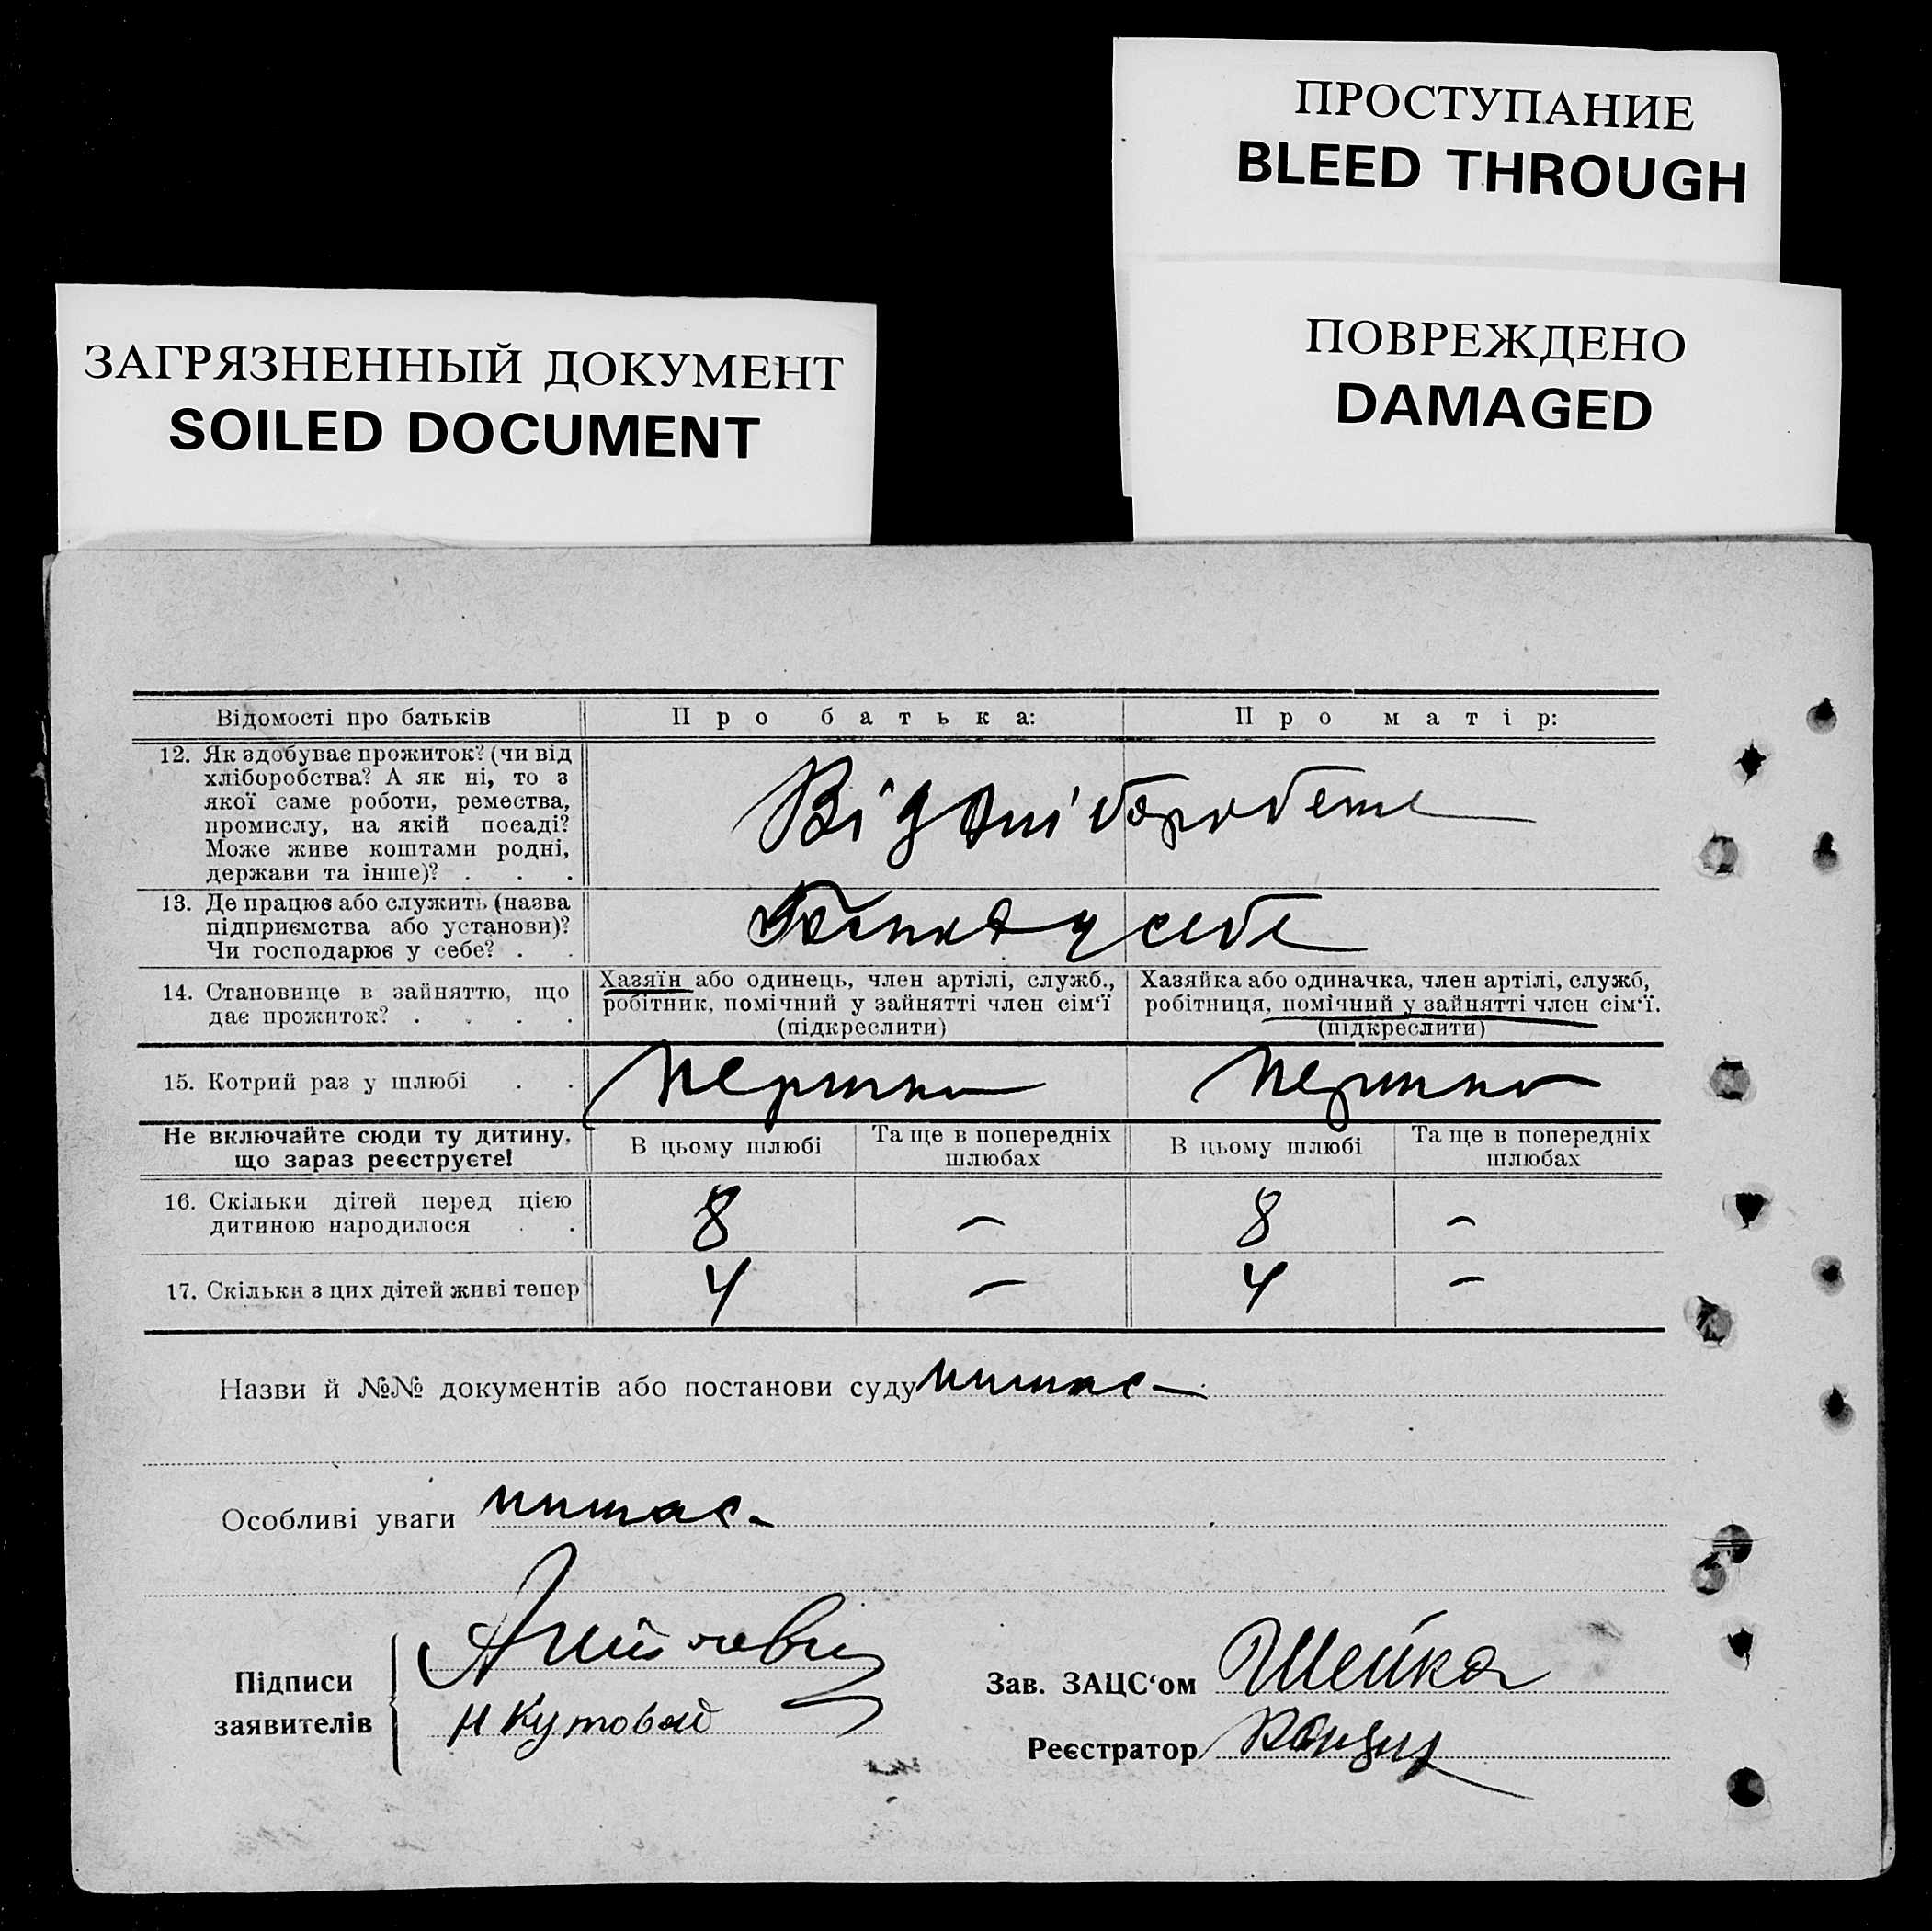 ПРОСТУПАНИЕ
BLEED THROUGH
ЗАГРЯЗНЕННЫЙ ДОКУМЕНТ
SOILED DOCUMENT
ПОВРЕЖДЕНО
DAMAGED
Відомості про батьків
Про батька:
Про матір:
12. Як здобуває прожиток? (чи від
хліборобства? А як ні, то з
якої саме роботи, ремества,
промислу, на якій посаді?
Може живе коштами родні,
держави та інше)? . . .
Від
13. Де працює або служить (назва
підприємства або установи)?
Чи господарює у себе? . .
у себе
14. Становище в зайняттю, що
дає прожиток? . . . .
Хазяїн або одинець, член артілі, служб.,
робітник, помічний у зайнятті член сім‘ї
(підкреслити)
Хазяйка або одиначка, член артілі, служб,
робітниця, помічний у зайнятті член сім‘ї.
(підкреслити)
15. Котрий раз у шлюбі . .
Не включайте сюди ту дитину,
що зараз реєструєте!
В цьому шлюбі
Та ще в попередніх
шлюбах
В цьому шлюбі
Та ще в попередніх
шлюбах
16. Скільки дітей перед цією
дитиною народилося . .
8 — 8 —
17. Скільки з цих дітей живі тепер
4 — 4 —
Назви й №№ документів або постанови суду немає
Особливі уваги немає
Підписи
заявителів
Н Кутовой
Зав. ЗАЦС‘ом Шейко
Реєстратор